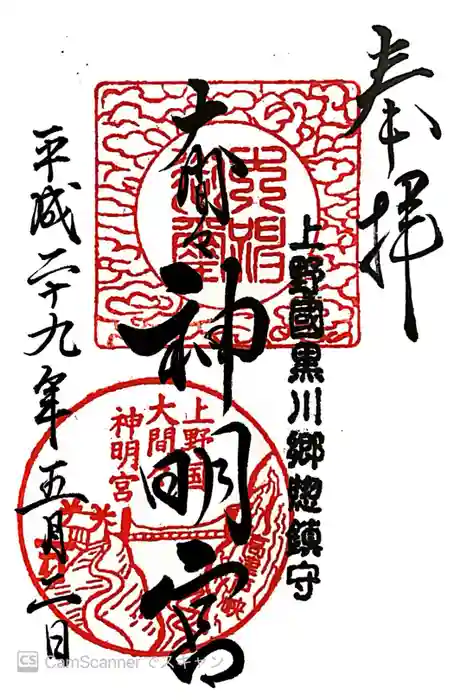 奉拝
上野國黒川郷惣鎮守
大間々
神明宮
平成二十九年五月二日
上野国
大間々
神明宮
CS CamScanner でスキャン